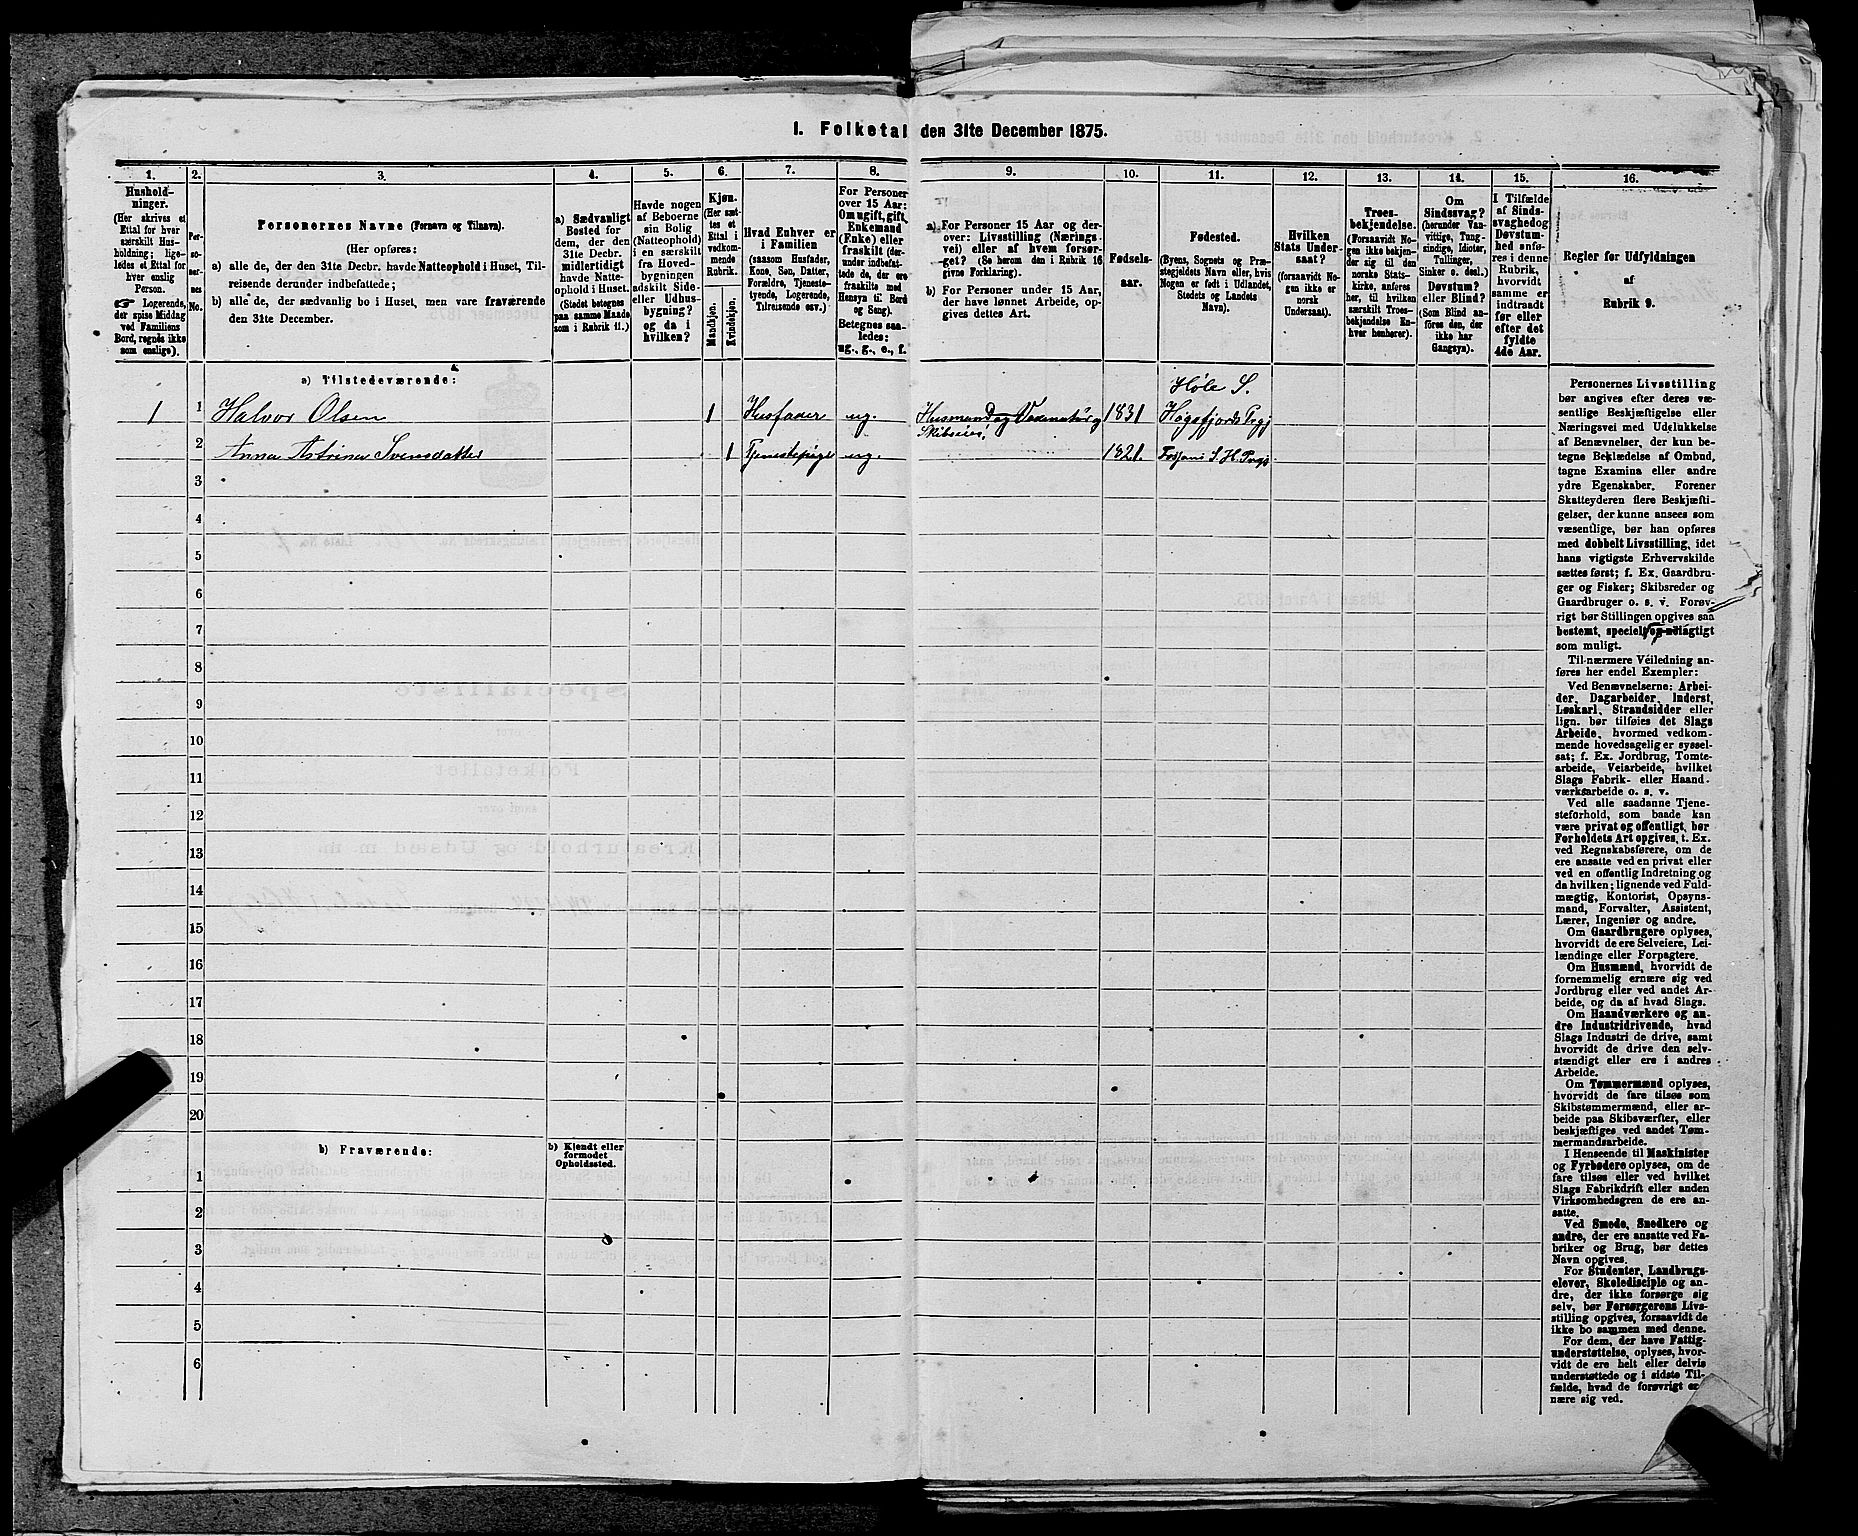 1. Folketal den 31te December 1875.
1.
Hushold-
ninger.
(Her skrives et
Ettal for hver
særskilt Hus-
holdning; lige-
ledes et Ettal for
hver enslig
Person.
☞ Logerende,
der spise Middag
ved Familiens
Bord, regnes ikke
som enslige).
2.
Per-
so-
ner-
nes
No.
3.
Personernes Navne (Fornavn og Tilnavn).
(Her opføres:
a) alle de, der den 31te Decbr. havde Natteophold i Huset, Til-
reisende derunder indbefattede;
b) alle de, der sædvanlig bo i Huset, men vare fraværende
den 31te December.
4.
a) Sædvanligt
Bosted for
dem, der den
31te Decbr.
midlertidigt
havde Natte-
ophold i Huset.
(Stedet betegnes
paa samme Maade
som i Rubrik 11.)
5.
Havde nogen
af Beboerne
sin Bolig
(Natteophold)
i en særskilt
fra Hoved-
bygningen
adskilt Side-
eller Udhus-
bygning?
og da i
hvilken?
6.
Kjøn.
(Her sæt-
tes et
Ettal i
vedkom-
mende
Rubrik.
Mandkjøn.
Kvindekjøn.
7.
Hvad Enhver er
i Familien
(saasom Husfader,
Kone, Søn, Datter,
Forældre, Tjeneste-
tyende, Logerende,
Tilreisende osv.)
8.
For Personer
over 15 Aar:
Om ugift, gift,
Enkemand
(Enke) eller
fraskilt (der-
under indbefat-
tede de, der ere
fraskilte med
Hensyn til Bord
og Seng).
Betegnes saa-
ledes:
ug., g., e., f.
9.
a) For Personer 15 Aar og der-
over: Livsstilling (Nærings-
vei) eller af hvem forsør-
get? (Se herom den i Rubrik 16
givne Forklaring).
b) For Personer under 15 Aar,
der have lønnet Arbeide, op-
gives dettes Art.
10.
Fødsels-
aar.
11.
Fødested.
(Byens, Sognets og Præ-
stegjeldets Navn eller, hvis
Nogen er født i Udlandet,
Stedets og Landets
Navn).
12.
Hvilken
Stats Under-
saat?
(forsaavidt No-
gen ikke er
norsk
Undersaat).
13.
Troes-
bekjendelse.
(Forsaavidt No-
gen ikke bekjen-
der sig til den
norske Stats-
kirke, anføres
her, til hvilken
særskilt Troes-
bekjendelse En-
hver henhører).
14.
Om
Sindssvag?
(herunder Van-
vittige, Tung-
sindige, Idioter
Tullinger,
Sinker o. desl.)
Døvstum?
eller Blind?
(Som Blind an-
føres den, der
ikke har
Gangsyn).
15.
I Tilfælde
af Sinds-
svaghed og
Døvstum-
hed anfø-
res i denne
Rubrik,
hvorvidt
samme er
indtraadt
før eller
efter det
fyldte
4de Aar.
16.
Regler for Udfyldningen
af
Rubrik 9.
a) Tilstedeværende:
Høle S.
1 1 Halvor Olsen 1 Husfader ug. Husmand 1831 Høgsfjords
Skibseier
2 Anna Astrina Svensdatter 1 Tjenestepige ug. 1821.
3
4
5
6
7
8
9
10
11
12
13
14
15
16
17
18
19
20
b) Fraværende:
b) Kjendt eller
formodet
Opholdssted.
1
2
3
4
5
6
Personernes Livsstilling
bør angives efter deres væ-
sentlige Beskjæftigelse eller
Næringsvei med Udelukkelse
af Benævnelser, der kun be-
tegne Beklædelse af Ombud,
tagne Examina eller andre
ydre Egenskaber. Forener
Skatteyderen flere Beskjæfti-
gelser, der kunne ansees som
væsentlige, bør han opføres
med dobbelt Livsstilling, idet
hans vigtigste Erhvervskilde
sættes først; f. Ex. Gaardbru-
ger og Fisker; Skibsreder og
Gaardbruger o. s. v. Forøv-
rigt bør Stillingen opgives saa
bestemt, specielt og nøiagtigt
som muligt.
Til nærmere Veiledning an-
føres her endel Exempler:
Ved Benævnelserne: Arbei-
der, Dagarbeider, Inderst,
Løskarl, Strandsidder eller
lign. bør tilføies det Slags
Arbeide, hvormed vedkom-
mende hovedsagelig er syssel-
sat; f. Ex. Jordbrug, Tomte-
arbeide, Veiarbeide, hvilket
Slags Fabrik- eller Haand-
værksarbeide o. s. v.
Ved alle saadanne Tjene-
steforhold, som baade kan
være privat og offentligt, bør
Forholdets Art opgives, t. Ex.
ved Regnskabsførere, om de
ere ansatte ved en privat eller
ved en offentlig Indretning og
da hvilken; lignende ved Fuld-
mægtig, Kontorist, Opsyns-
mand, Forvalter, Assistent,
Lærer, Ingeniør og andre.
Om Gaardbrugere oplyses,
hvorvidt de ere Selveiere, Lei-
lændinge eller Forpagtere.
Om Husmænd, hvorvidt de
fornemmelig ernære sig ved
Jordbrug eller ved andet Ar-
beide, og da af hvad Slags.
Om Haandværkere og an-
dre Industridrivende, hvad
Slags Industri de drive, samt
hvorvidt de drive den selv-
stændigt eller ere i andres
Arbeide.
Om Tømmermænd oplyses,
hvorvidt de fare tilsøs som
Skibstømmermænd, eller ar-
beide paa Skibsværfter, eller
beskjæftiges ved andet Tøm-
mermandsarbeide.
I Henseende til Maskinister
og Fyrbødere oplyses, om de
fare tilsøs eller ved hvilket
Slags Fabrikdrift eller anden
Virksomhedsgren de ere an-
satte.
Ved Smede, Snedkere og
andre, der ere ansatte ved Fa-
briker og Brug, bør dettes
Navn opgives.
For Studenter, Landbrugs-
elever, Skoledisciple og an-
dre, der ikke forsørge sig
selv, bør Forsørgerens Livs-
stilling opgives, forsaavidt de
ikke bo sammen med denne.
For dem, der have Fattig-
understøttelse, oplyses, hvor-
vidt de ere helt eller delvis
understøttede og i sidste Til-
fælde, hvad de forøvrigt er-
nære sig ved.